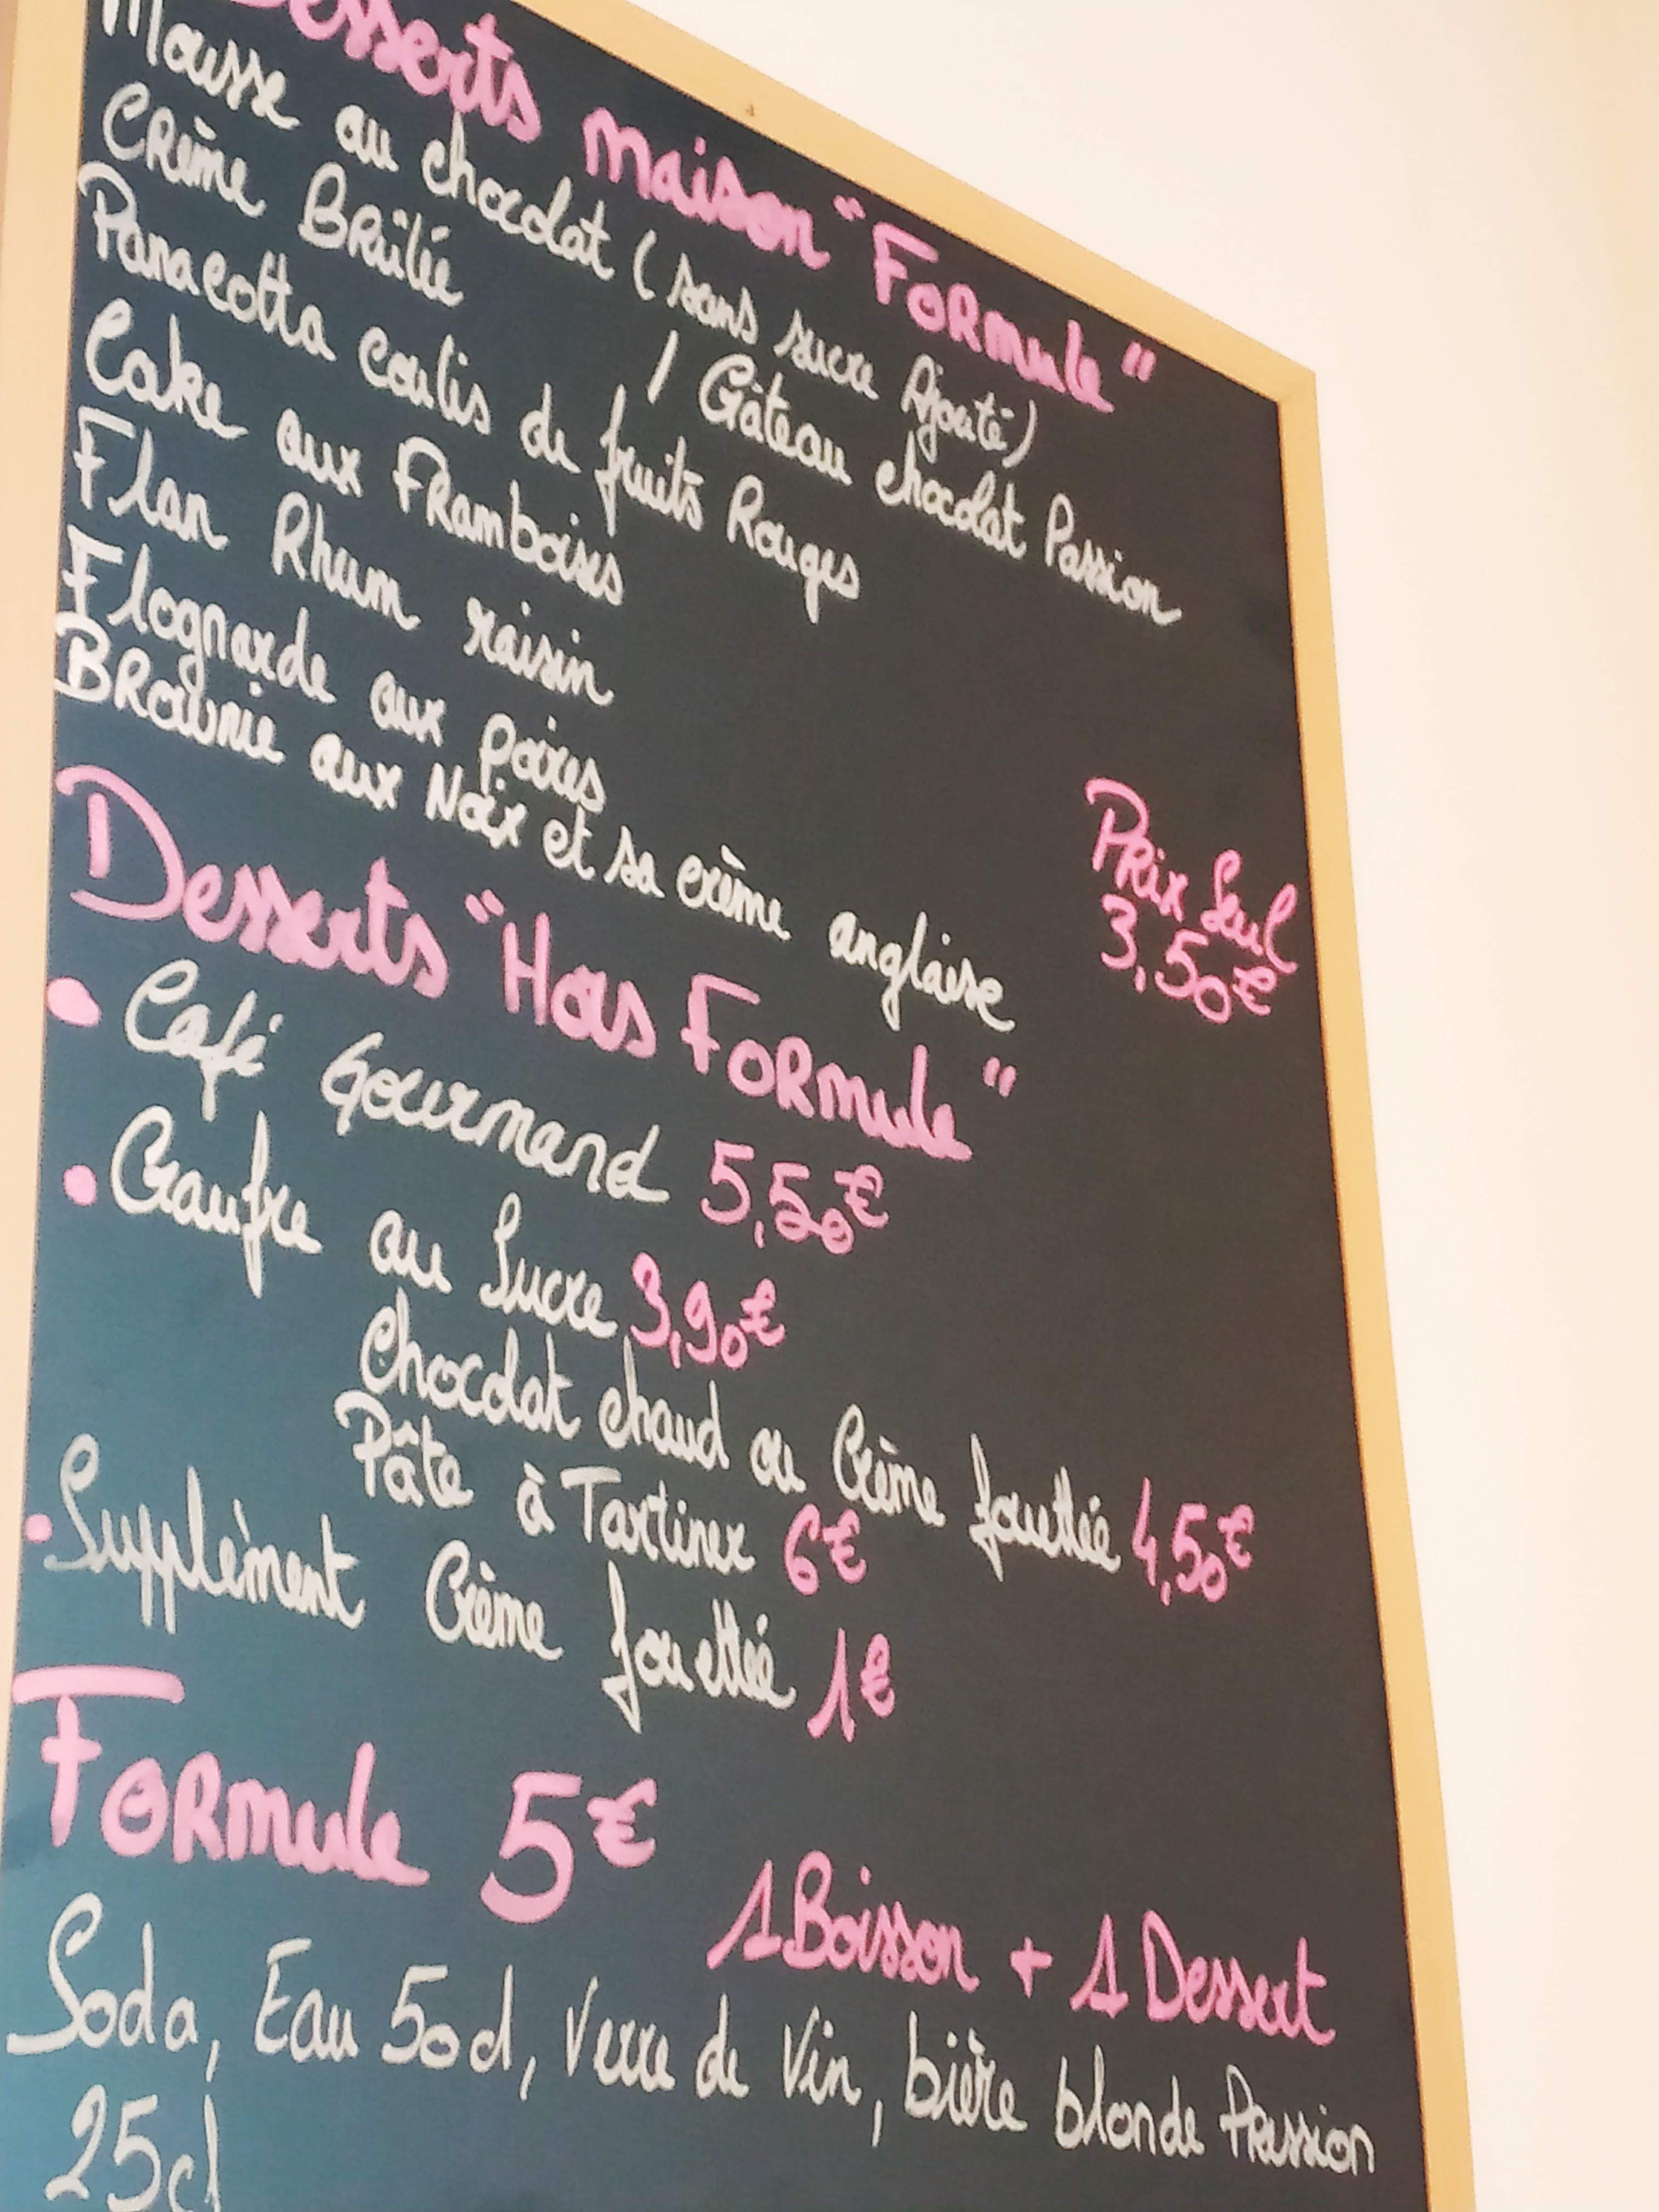 Desserts maison "Formule"
Mousse au chocolat (sans sucre Ajouté)
Crème Brûlée / Gâteau chocolat Passion
Panacotta coulis de fruits Rouges
Cake aux Framboises
Flan Rhum raisin
Flognarde aux poires
Brownie aux Noix et sa crème anglaise
Prix Seul
3,50€
Desserts "Hors Formule"
• Café Gourmand 5,50€
• Gaufre au Sucre 3,90€
Chocolat chaud ou Crème fouettée 4,50€
Pâte à Tartiner 6€
• Supplément Crème fouettée 1€
Formule 5€
1 Boisson + 1 Dessert
Soda, Eau 50cl, Verre de Vin, bière blonde Pression
25cl